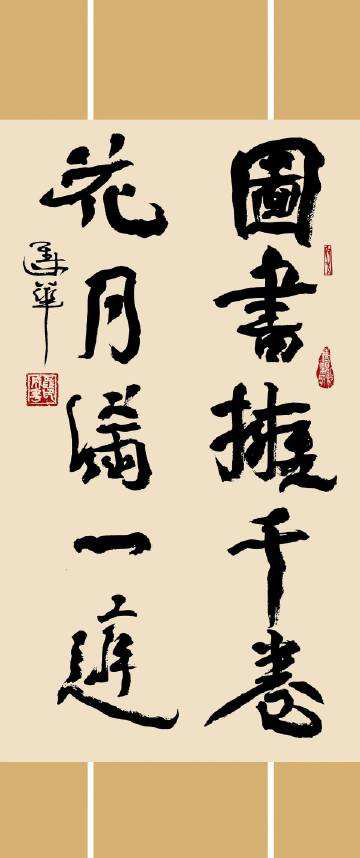 圖書擁千卷
花月滿一庭
蓮華